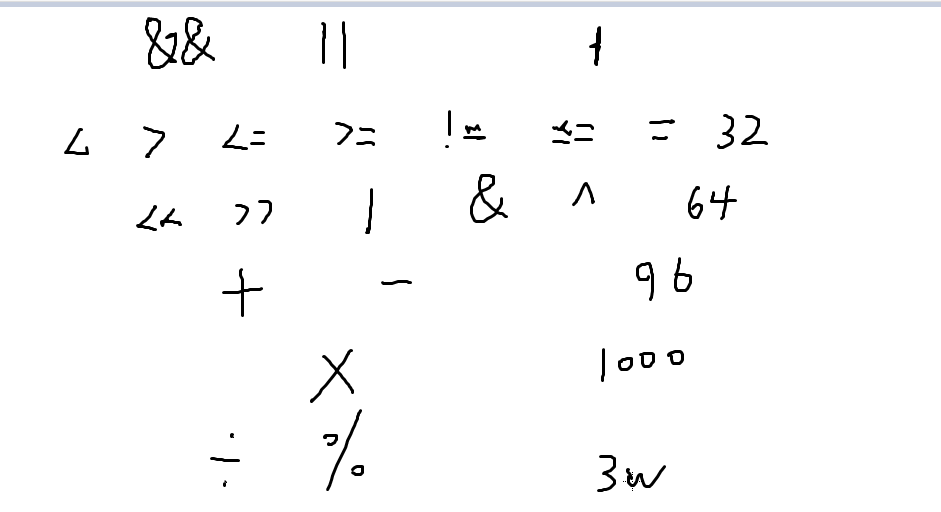 && || 1
< > <= >= != == = 32
<< >> | & ^ 64
+ - 96
× 1000
÷ % 3w